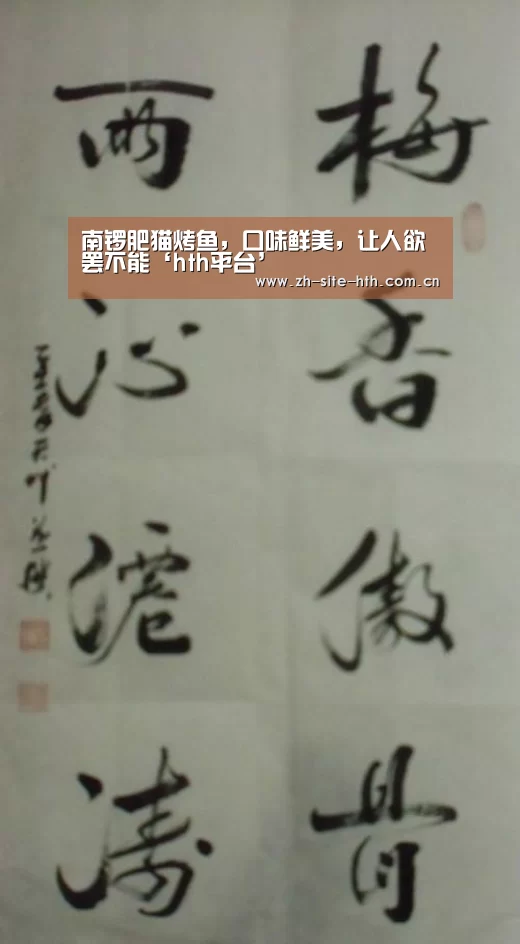 南锣肥猫烤鱼，口味鲜美，让人欲
罢不能‘hth平台’
www.zh-site-hth.com.cn
梅香傲骨
雨沁涛